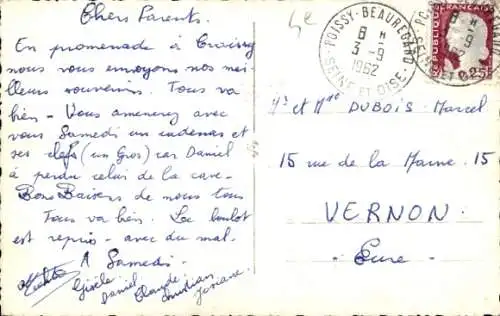 Chers Parents.
En promenade à Croissy
nous vous envoyons nos meil-
leurs souvenirs. Tous va
bien - Vous amenerez avec
vous Samedi un cadenas et
ses clefs (un Gros) car Daniel
a perdu celui de la cave -
Bons Baisers de nous tous
Tous va bien. Le boulot
est repris - avec du mal.
A Samedi.
Gisèle
Daniel
Claude
Christian
Josiane
POISSY-BEAUREGARD
8 H
3-9
1962
SEINE ET OISE
8 H
3-9
REPUBLIQUE FRANÇAISE
0,25
Mr et Mme DUBOIS. Marcel
15 rue de la Marne. 15
VERNON.
Eure.